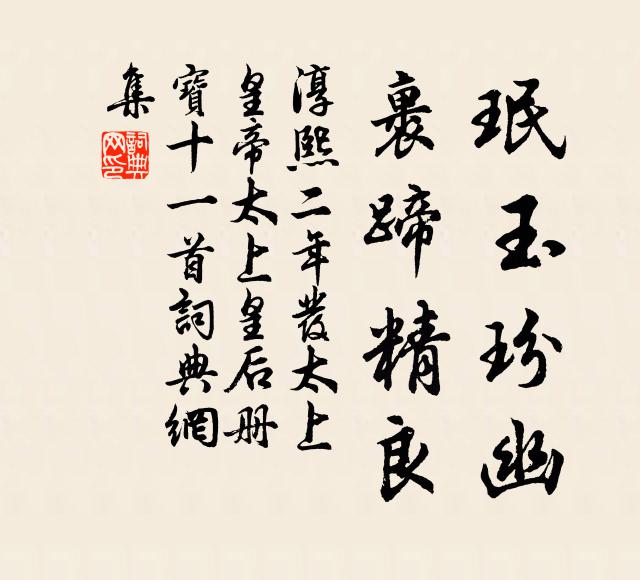 珉玉玢豳
裹蹄精良
淳熙二年發太上
皇帝太上皇后册
寶十一首詞典網
集
詞典網印